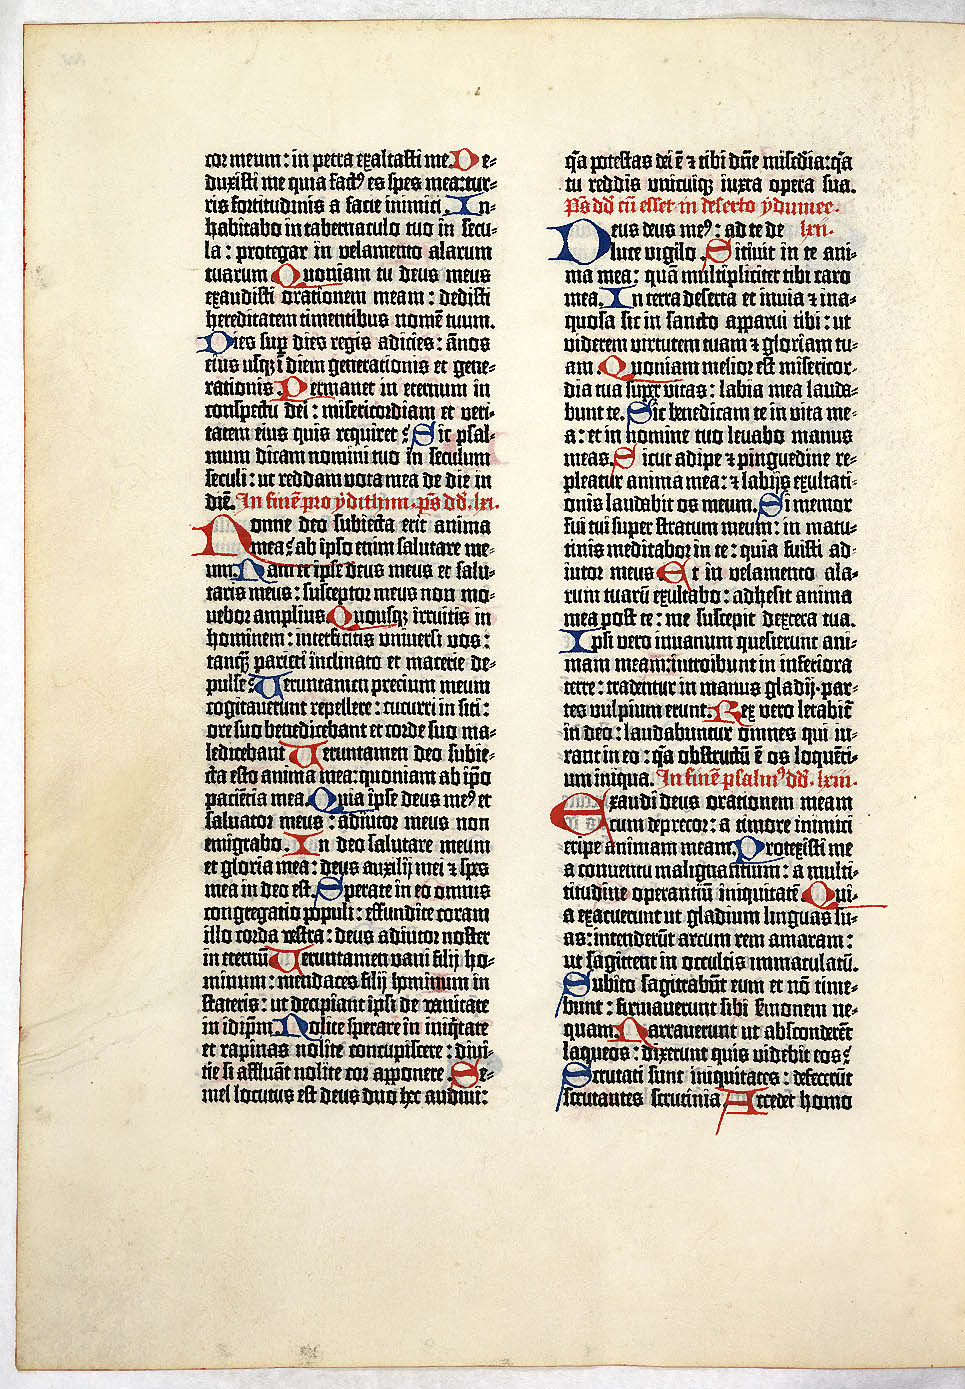 cor meum: in petra exaltasti me. De-
duxisti me quia fact9 es spes mea: tur-
ris fortitudinis a facie inimici. In-
habitabo in tabernaculo tuo in secu-
la: protegar in velamento alarum
tuarum Quoniam tu deus meus
exaudisti orationem meam: dedisti
hereditatem timentibus nomē tuum.
Dies sup dies regis adicies: ānos
eius usqꝫ ī diem generationis et gene-
rationis. Permanet in eternum in
conspectu dei: misericordiam et veri-
tatem eius quis requiret? Sic psal-
mum dicam nomini tuo in seculum
seculi: ut reddam vota mea de die in
diē. In finē pro ydithun. ps dd. lxi.
Nonne deo subiecta erit anima
mea? ab ipso enim salutare me-
um. Nam et ipse deus meus et salu-
taris meus: susceptor meus non mo-
vebor amplius. Quousqꝫ irruitis in
hominem: interficitis universi vos:
tanqꝫ parieti inclinato et macerie de-
pulse? Veruntamen precium meum
cogitaverunt repellere: cucurri in siti:
ore suo benedicebant et corde suo ma-
ledicebant Veruntamen deo subie-
cta esto anima mea: quoniam ab ip̄o
paciētia mea. Quia ipse deus me9 et
salvator meus: adiutor meus non
emigrabo. In deo salutare meum
et gloria mea: deus auxilij mei ⁊ spes
mea in deo est. Sperate in eo omnis
congregatio populi: effundite coram
illo corda vestra: deus adiutor noster
in eternū Veruntamen vani filij ho-
minum: mendaces filij hominum in
stateris: ut decipiant ipsi de vanitate
in idip̄m. Nolite sperare in iniqͥtate
et rapinas nolite concupiscere: divi-
tie si affluāt nolite cor apponere. Se-
mel locutus est deus duo hec audivi:
qͣ potestas dei ē ⁊ tibi dn̄e mis̄cdia: qͣ
tu reddis unicuiqꝫ iuxta opera sua.
Ps dd cū esset in deserto ydumee.
Deus deus me9: ad te de lxii.
luce vigilo. Sitivit in te ani-
ma mea: quā multipliciter tibi caro
mea. In terra deserta et invia ⁊ ina-
quosa sic in sancto apparui tibi: ut
viderem virtutem tuam ⁊ gloriam tu-
am. Quoniam melior est misericor-
dia tua super vitas: labia mea lauda-
bunt te. Sic benedicam te in vita me-
a: et in nomine tuo levabo manus
meas. Sicut adipe ⁊ pinguedine re-
pleatur anima mea: ⁊ labijs exultati-
onis laudabit os meum. Si memor
fui tui super stratum meum: in matu-
tinis meditabor in te: quia fuisti ad-
iutor meus Et in velamento ala-
rum tuarū exultabo: adhesit anima
mea post te: me suscepit dextera tua.
Ipsi vero invanum quesierunt ani-
mam meam: introibunt in inferiora
terre: tradentur in manus gladij. par-
tes vulpium erunt. Rex vero letabit̄
in deo: laudabuntur omnes qui iu-
rant in eo: qͣ obstructū ē os loquēti-
um iniqua. In finē psalm9 dd. lxiii.
Exaudi deus orationem meam
cum deprecor: a timore inimici
eripe animam meam. Protexisti me
a conventu malignantium: a multi-
titudine operantiū iniquitatē Qui-
a exacuerunt ut gladium linguas su-
as: intenderūt arcum rem amaram:
ut sagittent in occultis immaculatū.
Subito sagittabūt eum et nō time-
bunt: firmaverunt sibi s̄monem ne-
quam. Narraverunt ut absconderēt
laqueos: dixerunt quis videbit eos?
Scrutati sunt iniquitates: defecerūt
scrutantes scrutinia. Accedet homo